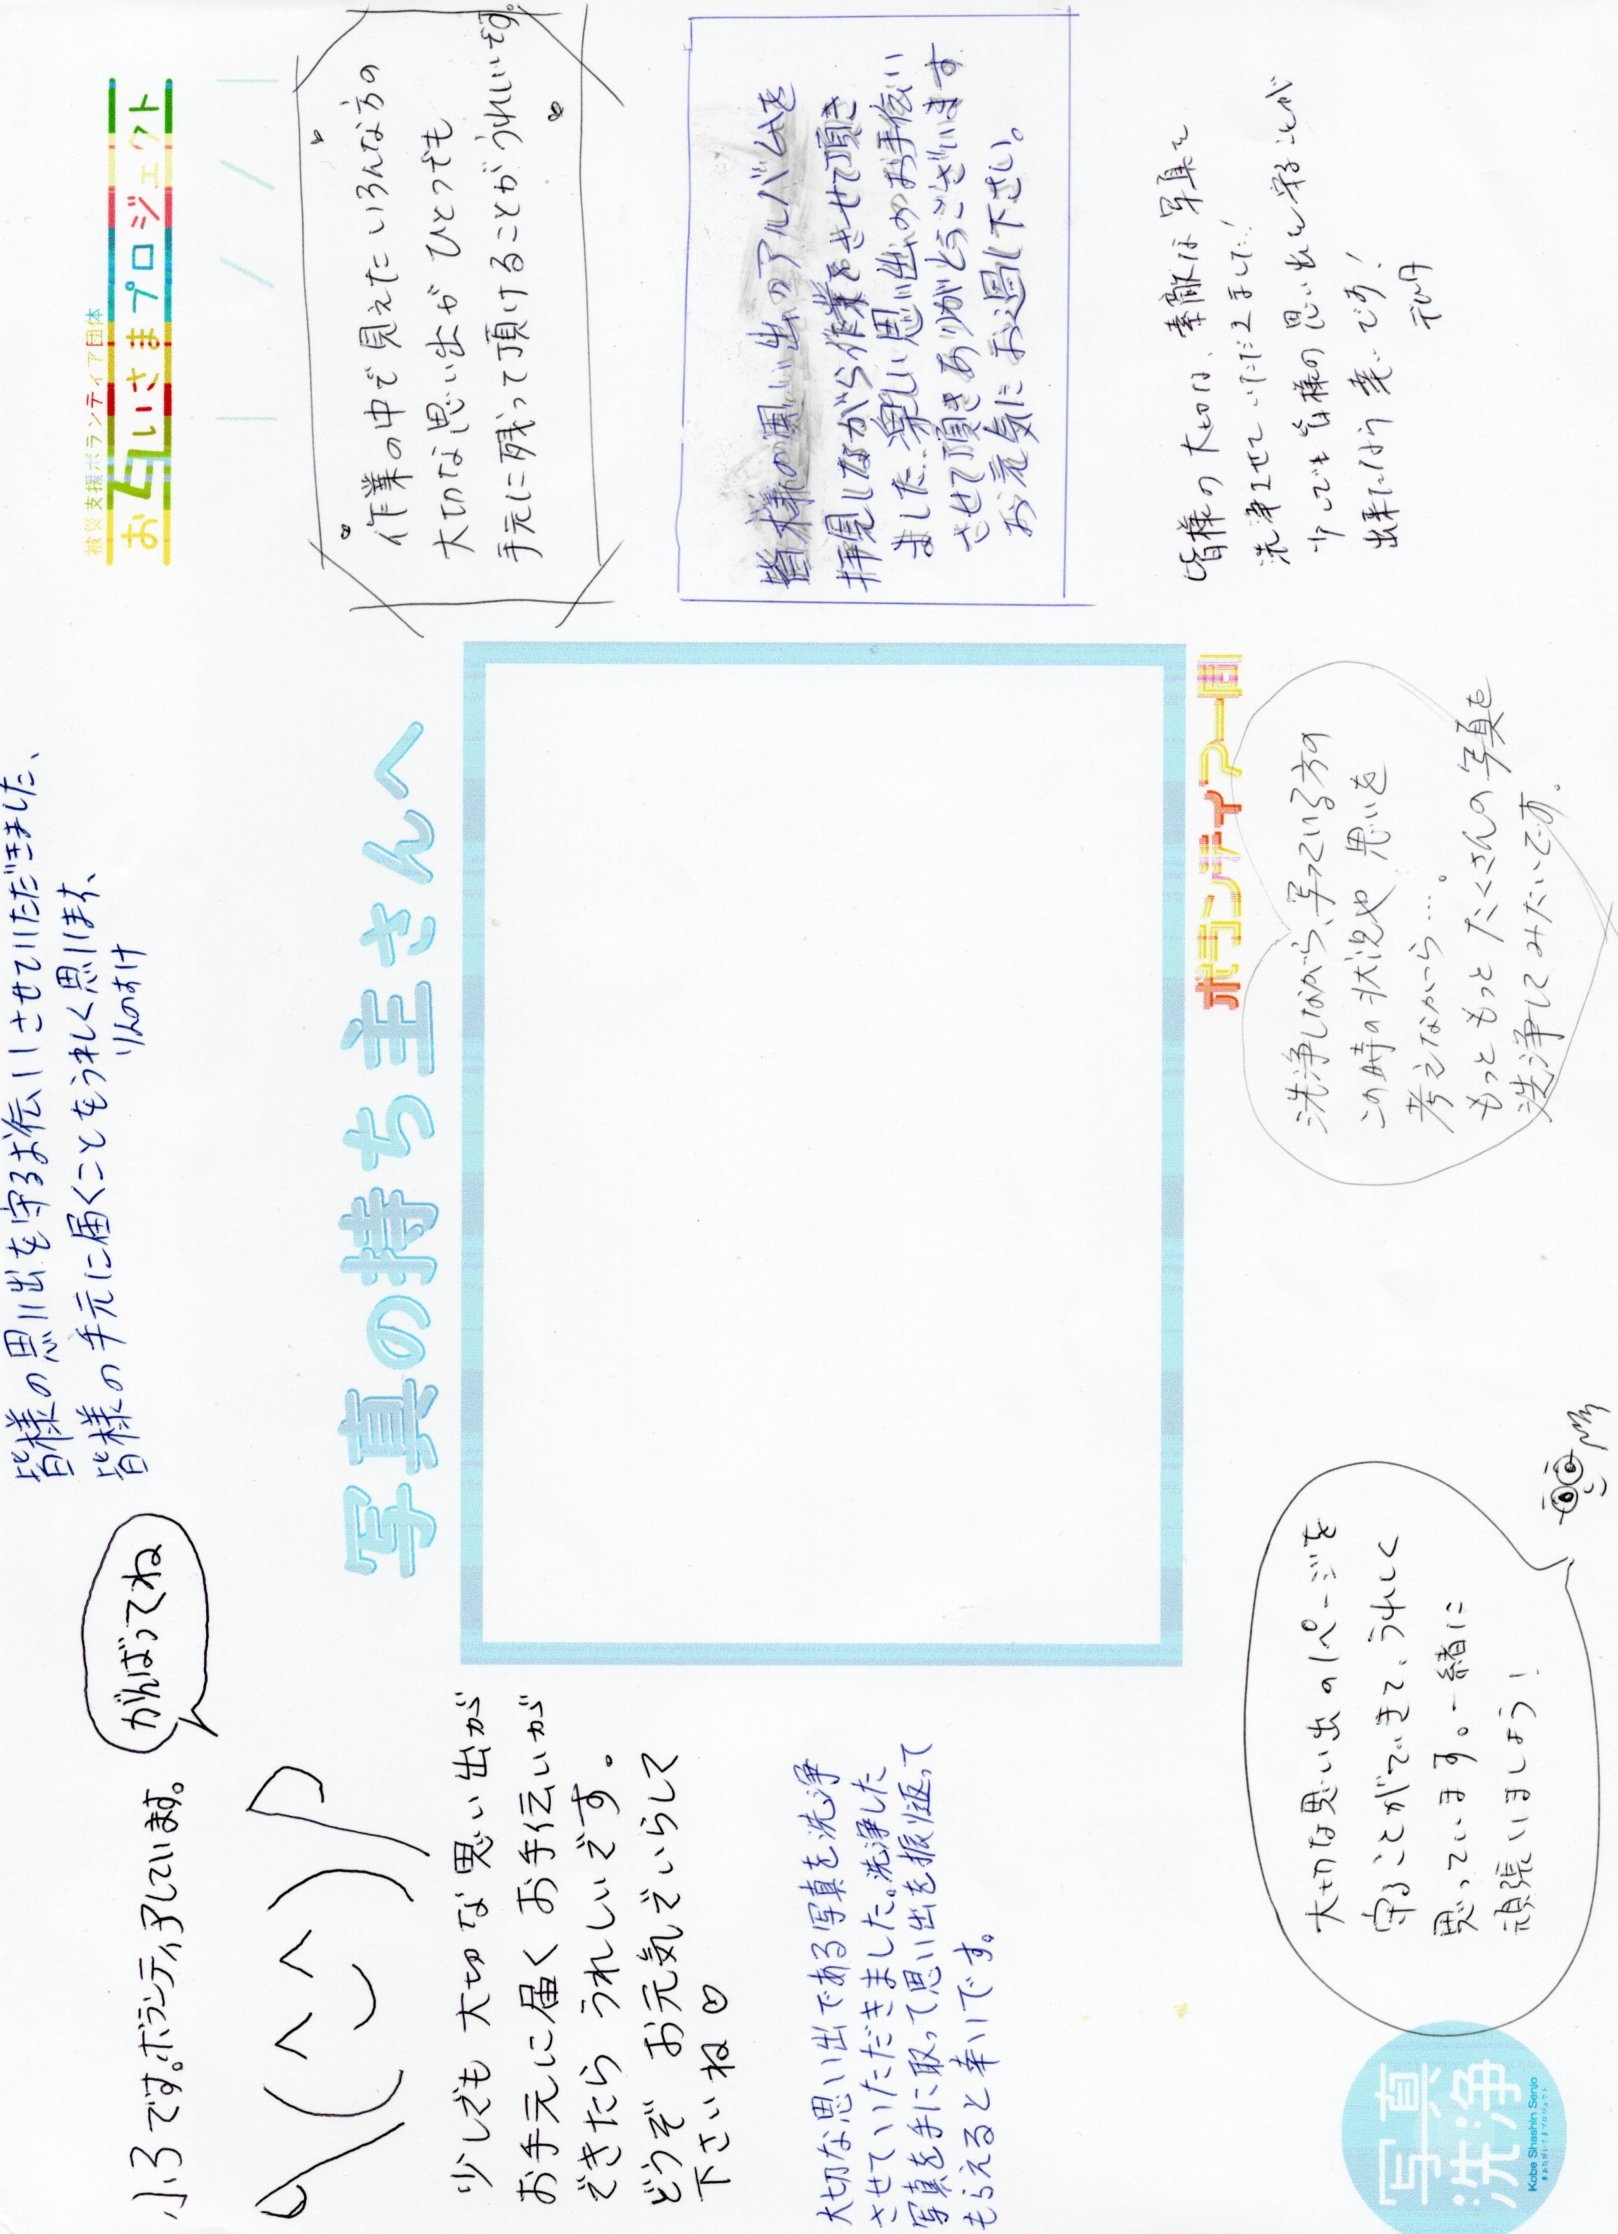 小3です。ボランティアしています。
がんばってね
皆様の思い出を守るお伝いさせていただきました、
皆様の手元に届くことをうれしく思います、
りんのすけ
被災支援ボランティア団体
おたがいさまプロジェクト
写真の持ち主さんへ
作業の中で見えたいろんな方の
大切な思い出がひとつでも
手元に残って頂けることがうれしいです。
少しでも大切な思い出が
お手元に届くお手伝いが
できたらうれしいです。
どうぞ お元気でいらして
下さいね♡
皆様の思い出のアルバムを
拝見しながら作業をさせて頂き
ました。楽しい思い出のお手伝い
させて頂きありがとうございます
お元気にお過し下さい。
大切な思い出である写真を洗浄
させていただきました。洗浄した
写真を手に取って思い出を振り返って
もらえると幸いです。
ボランティア一同
皆様の大切な、素敵な写真を
洗浄させていただきました!
少しでも皆様の思い出を守ることが
出来たなら幸いです!
洗浄しながら、写っている方の
この時の状況や思いを
考えながら…。
もっともっとたくさんの写真を
洗浄してみたいです。
大切な思い出の1ページを
守ることができて、うれしく
思っています。一緒に
頑張いましょう!
写真
洗浄
Kobe Shashin Senjo